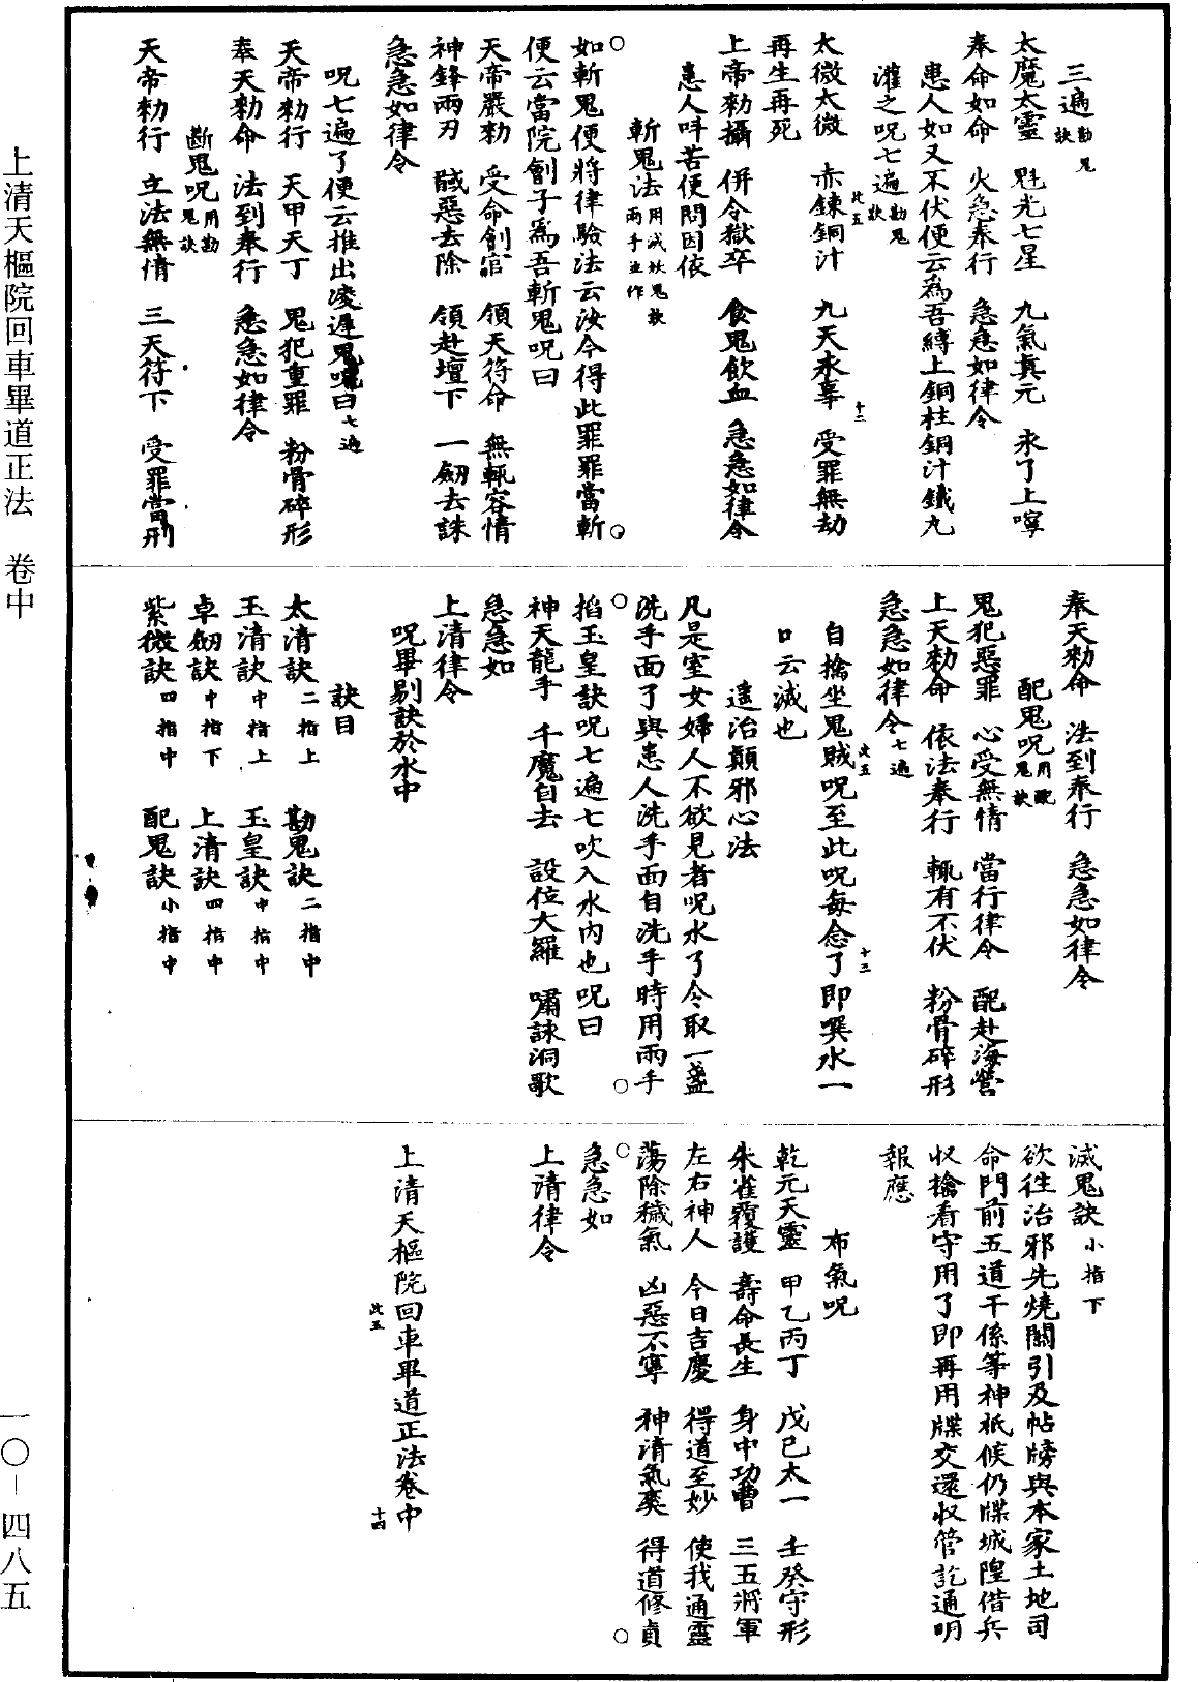 三遍勘鬼訣
太魔太靈　魁光七星　九氣真元　永了上寧
奉命如命　火急奉行　急急如律令
患人如又不伏便云為吾縛上銅柱銅汁鐵丸
灌之呪七遍勘鬼訣
太微太微　赤鍊銅汁　九天永辜　受罪無劫
此五
十二
再生再死
上帝勑攝　併令獄卒　食鬼飲血　急急如律令
患人呌苦便問因依
斬鬼法用滅妖鬼訣兩手並作
如斬鬼便將律驗法云汝今得此罪罪當斬
便云當院劊子為吾斬鬼呪曰
天帝嚴勑　受命劊官　領天符命　無輒容情
神鋒兩刃　馘惡去除　領赴壇下　一劒去誅
急急如律令
呪七遍了便云推出凌遲鬼呪曰七遍
天帝勑行　天甲天丁　鬼犯重罪　粉骨碎形
奉天勑命　法到奉行　急急如律令
斷鬼呪用勘鬼訣
天帝勑行　立法無情　三天符下　受罪當刑
奉天勑命　法到奉行　急急如律令
配鬼呪用配鬼訣
鬼犯惡罪　心受無情　當行律令　配赴海營
上天勑命　依法奉行　輒有不伏　粉骨碎形
急急如律令七遍
自擒坐鬼賊呪至此呪每念了即噀水一
此五
十三
口云滅也
遙治顛邪心法
凡是室女婦人不欲見者呪水了令取一盞
洗手面了與患人洗手面自洗手時用兩手
掐玉皇訣呪七遍七吹入水內也呪曰
神天龍手　千魔自去　設位大羅　嘯誎洞歌
急急如
上清律令
呪畢剔訣於水中
訣目
太清訣二指上　勘鬼訣二指中
玉清訣中指上　玉皇訣中指中
卓劒訣中指下　上清訣四指中
紫微訣四指中　配鬼訣小指中
滅鬼訣小指下
欲往治邪先燒關引及帖牓與本家土地司
命門前五道干係等神祇候仍牒城隍借兵
收擒看守用了即再用牒交還收管訖通明
報應
布氣呪
乾元天靈　甲乙丙丁　戊己太一　壬癸守形
朱雀覆護　壽命長生　身中功曹　三五將軍
左右神人　今日吉慶　得道至妙　使我通靈
蕩除穢氣　凶惡不寧　神清氣爽　得道修真
急急如
上清律令
上清天樞院回車畢道正法卷中
此五
十四
上清天樞院回車畢道正法　卷中
一〇－四八五